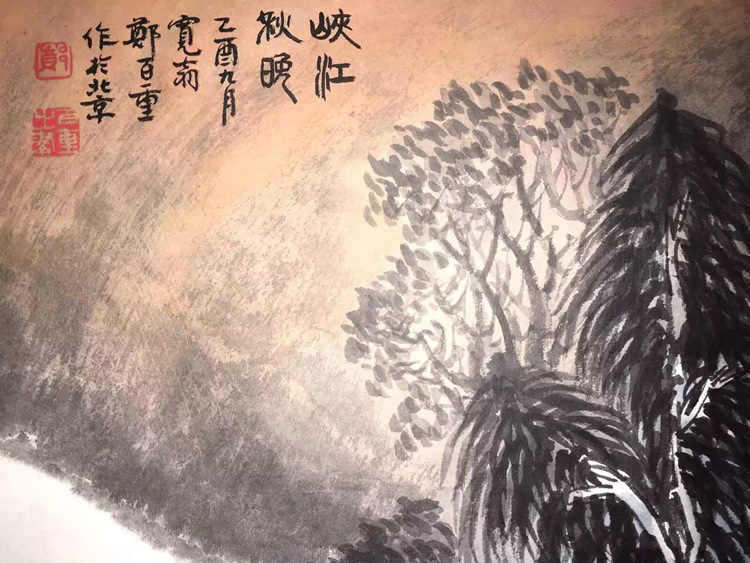 峽江
秋晚
乙酉九月
寬翁
鄭百重
作於北京